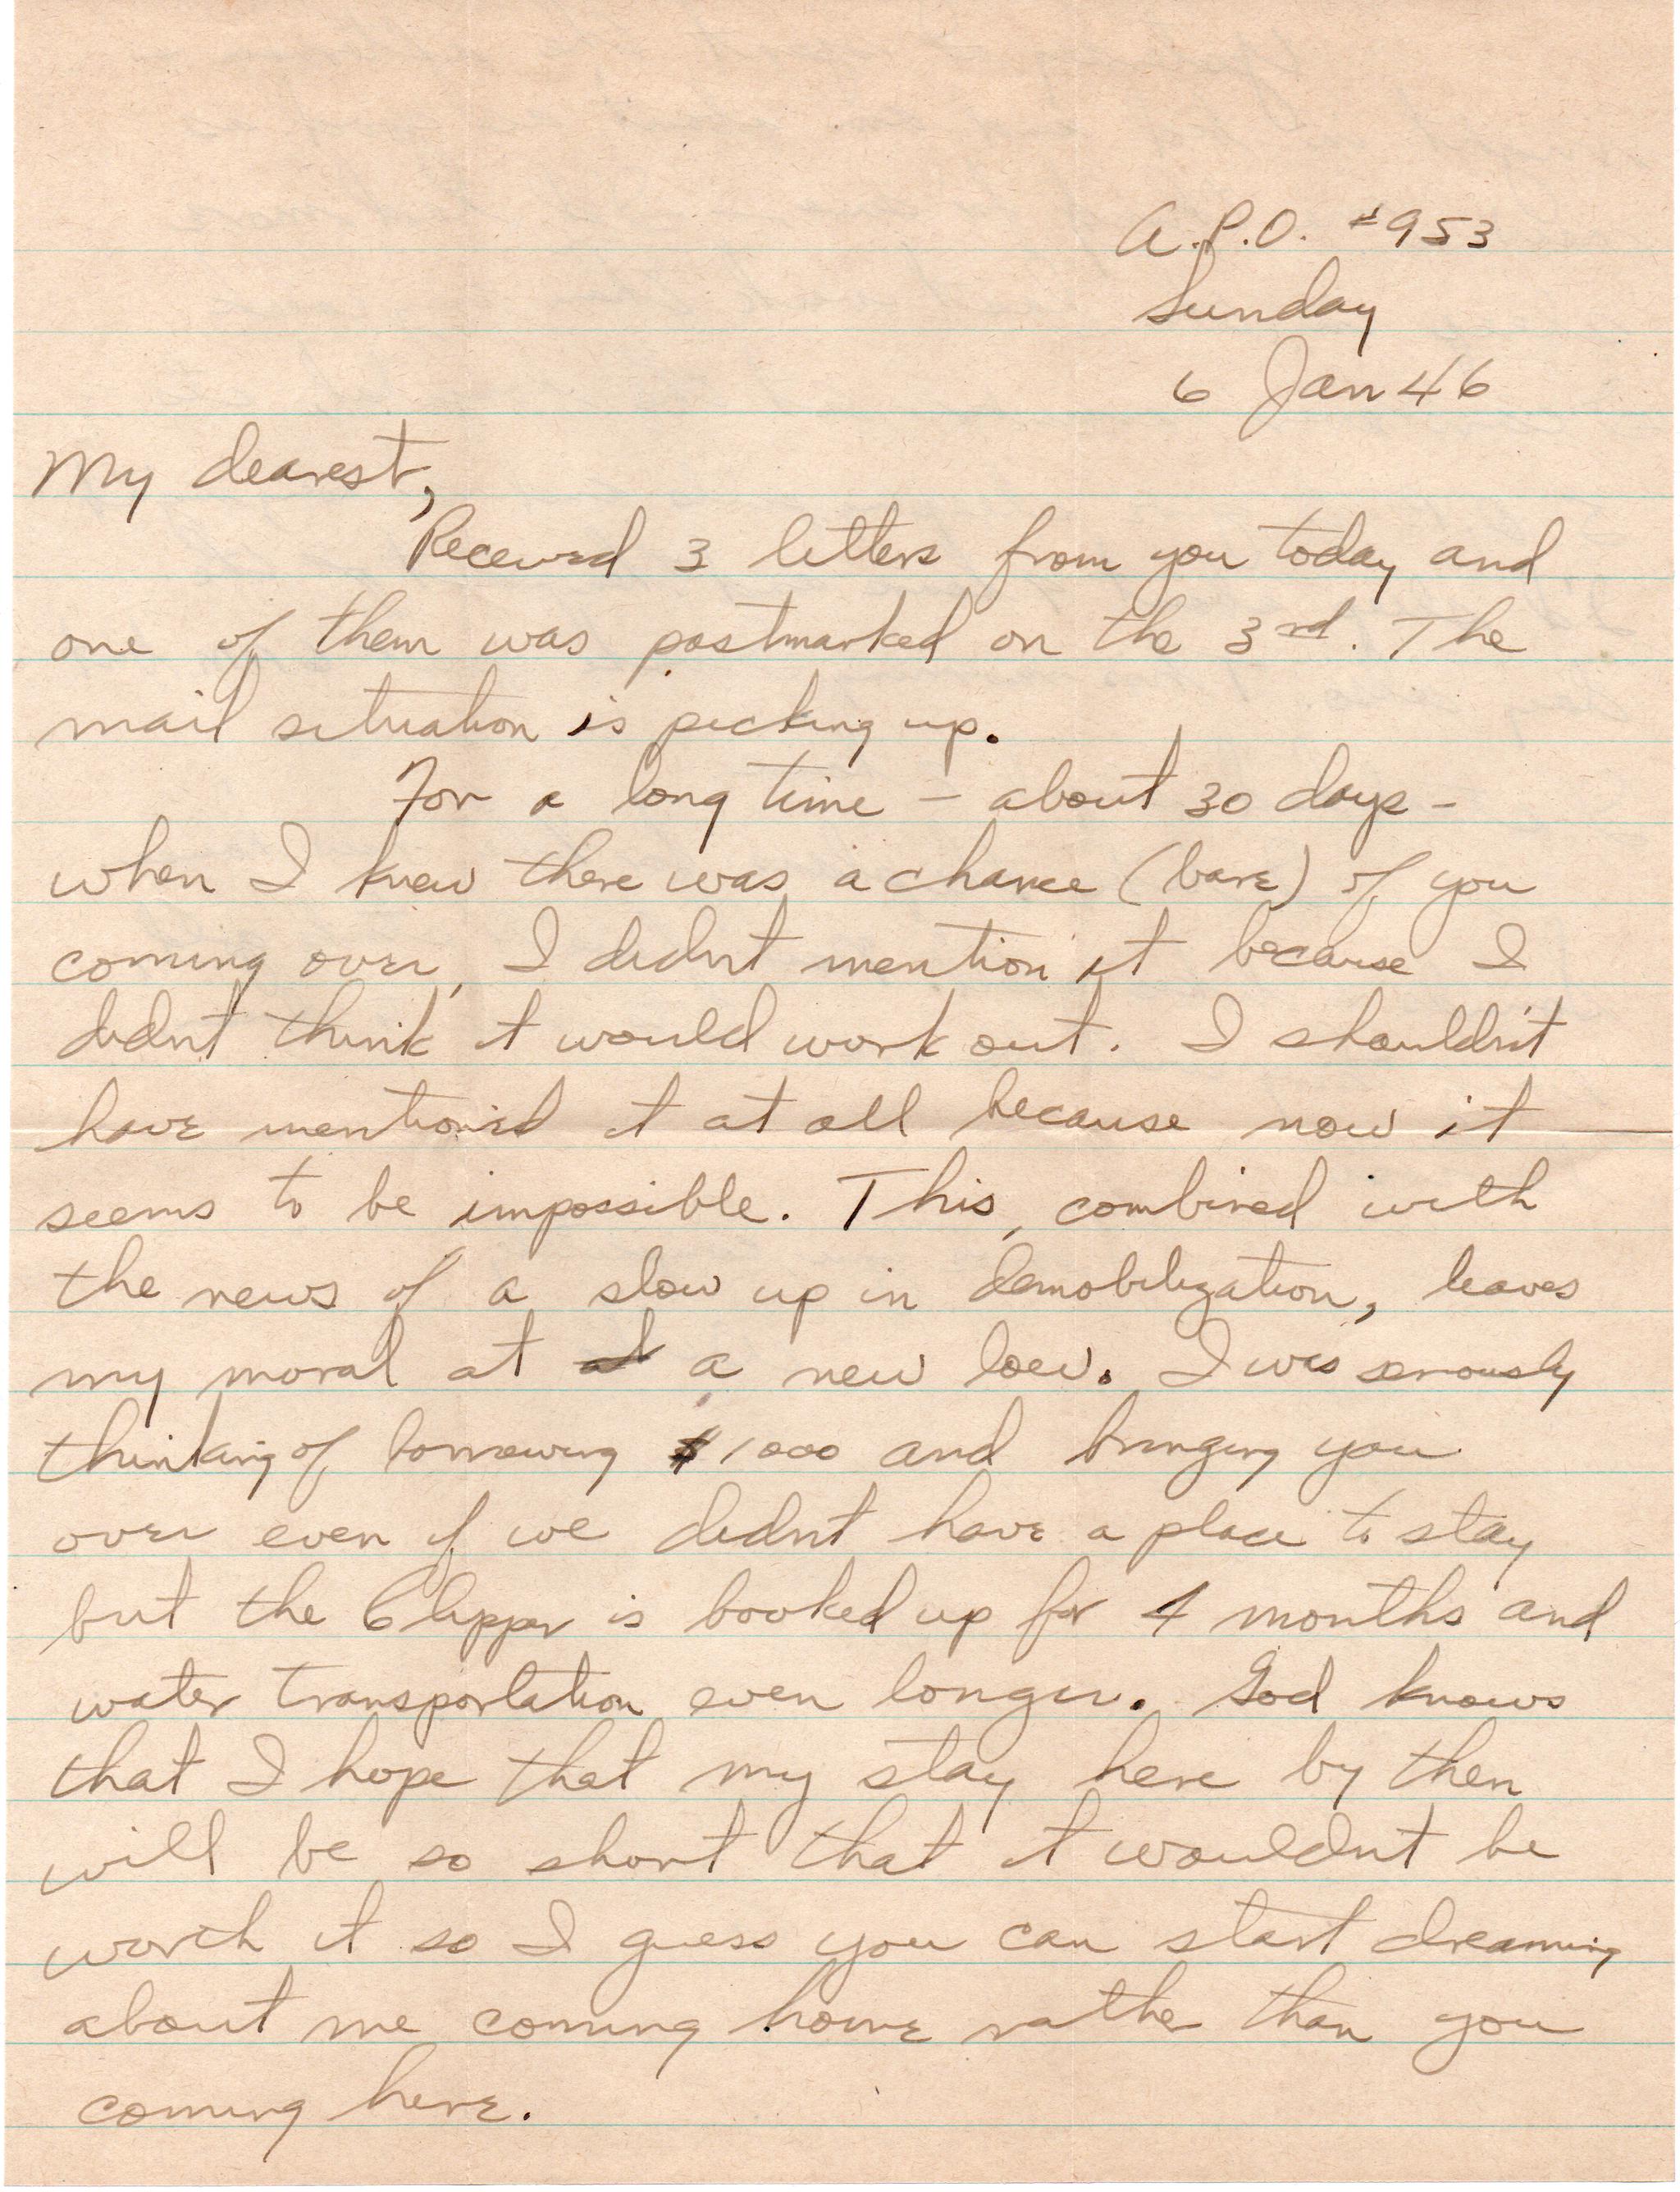 A.P.O. #953
Sunday
6 Jan 46
My dearest,
Received 3 letters from you today and
one of them was postmarked on the 3rd. The
mail situation is picking up.
For a long time – about 30 days –
when I knew there was a chance (bare) of you
coming over, I didnt mention it because I
didnt think it would work out. I shouldn't
have mentioned it at all because now it
seems to be impossible. This, combined with
the news of a slow up in demobilization, leaves
my moral at a new low. I was seriously
thinking of borrowing $1000 and bringing you
over even if we didnt have a place to stay
but the Clipper is booked up for 4 months and
water transportation even longer. God knows
that I hope that my stay here by then
will be so short that it wouldnt be
worth it so I guess you can start dreaming
about me coming home rather than you
coming here.